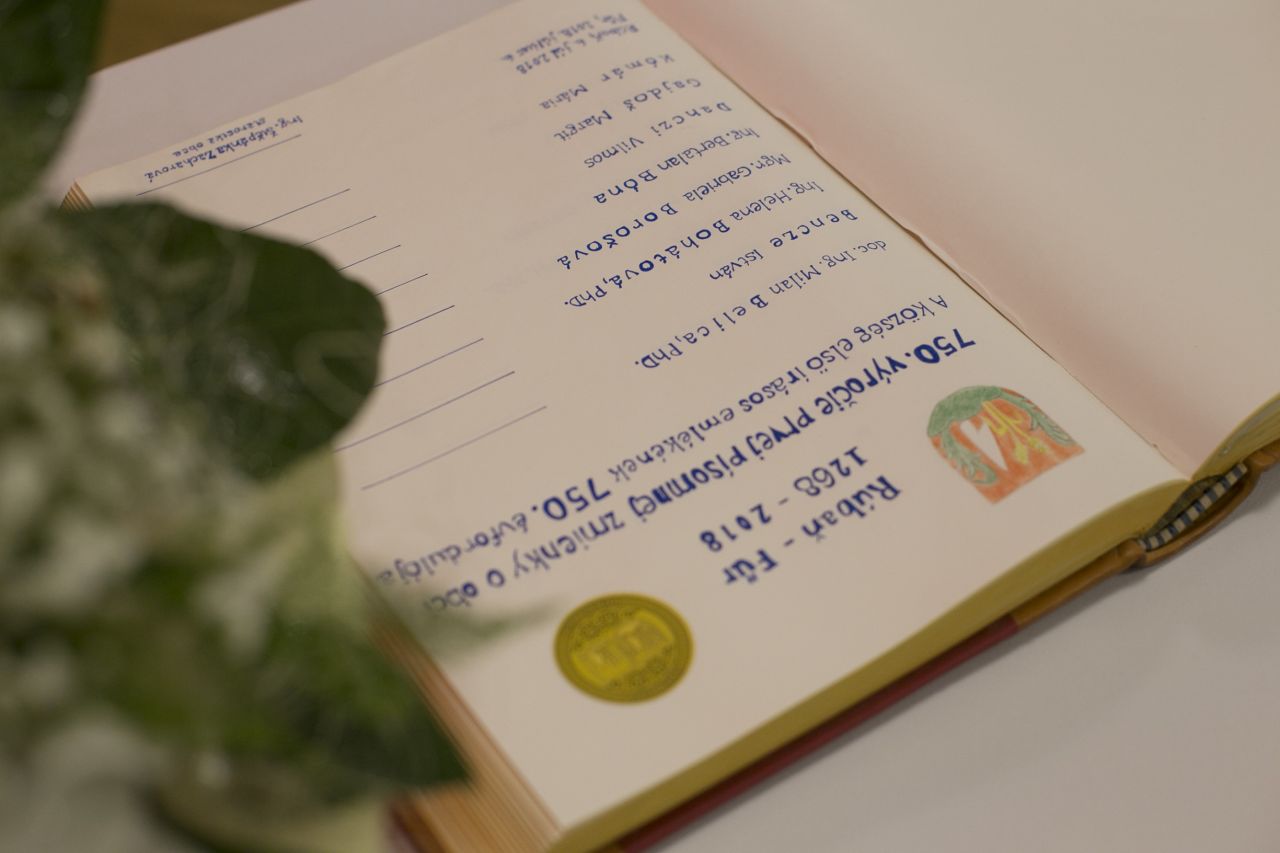 Rúbaň - Fűr
1268 - 2018
750. výročie prvej písomnej zmienky o obci
A község első írásos emlékének 750. évfordulója
doc. Ing. Milan Belica, PhD.
Bencze István
Ing. Helena Bohátová, PhD.
Mgr. Gabriela Borošová
Ing. Bertalan Bóna
Danczi Vilmos
Gajdoš Margit
Kómár Mária
Rúbaň, 6. júl 2018
Fűr, 2018. július 6.
Ing. Štěpánka Zacharová
starostka obce